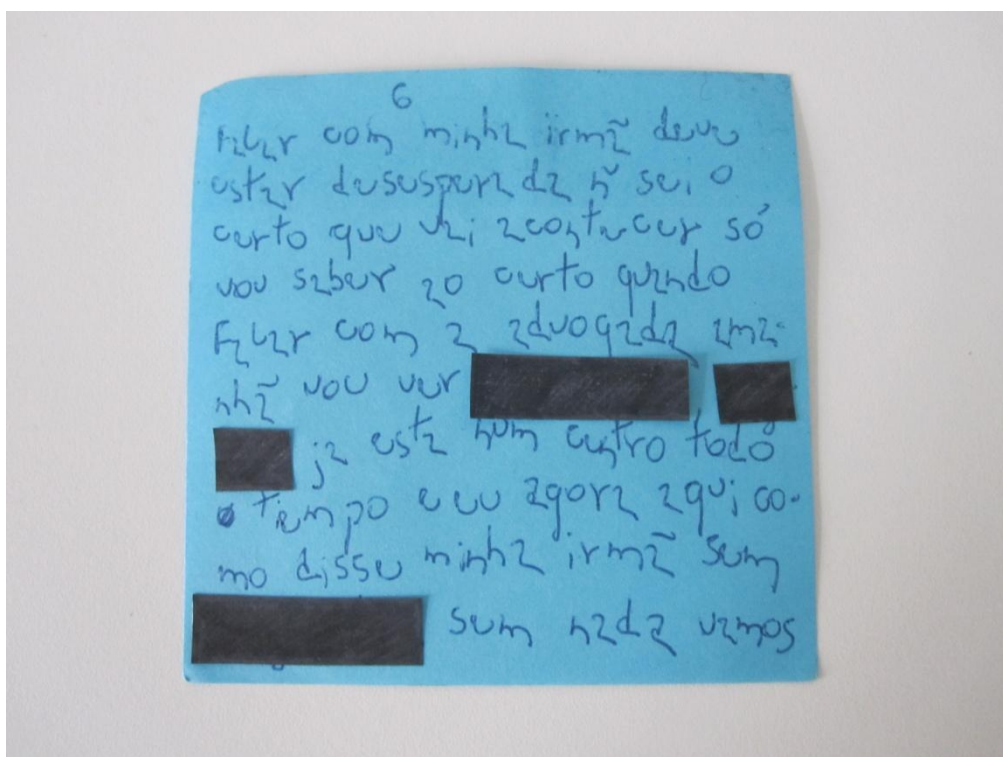 6
falar com minha irmã deve
estar desesperada ñ sei o
certo que vai acontecer só
vou saber ao certo quando
falar com a advogada ama-
nhã vou ver
já esta num centro todo
o tiempo e eu agora aqui co-
mo disse minha irmã sem
sem nada vamos